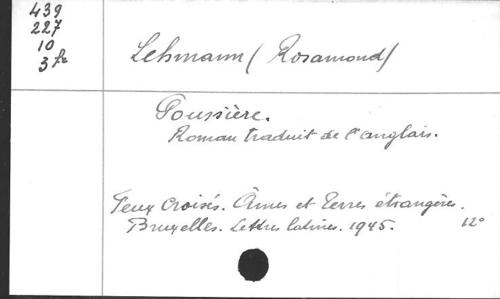 439
227
10
3 fe
Lehmann (Rosamond)
Poussière.
Roman traduit de l'anglais.
Feux croisés. Âmes et Terres étrangères.
Bruxelles. Lettres latines. 1945. 12°